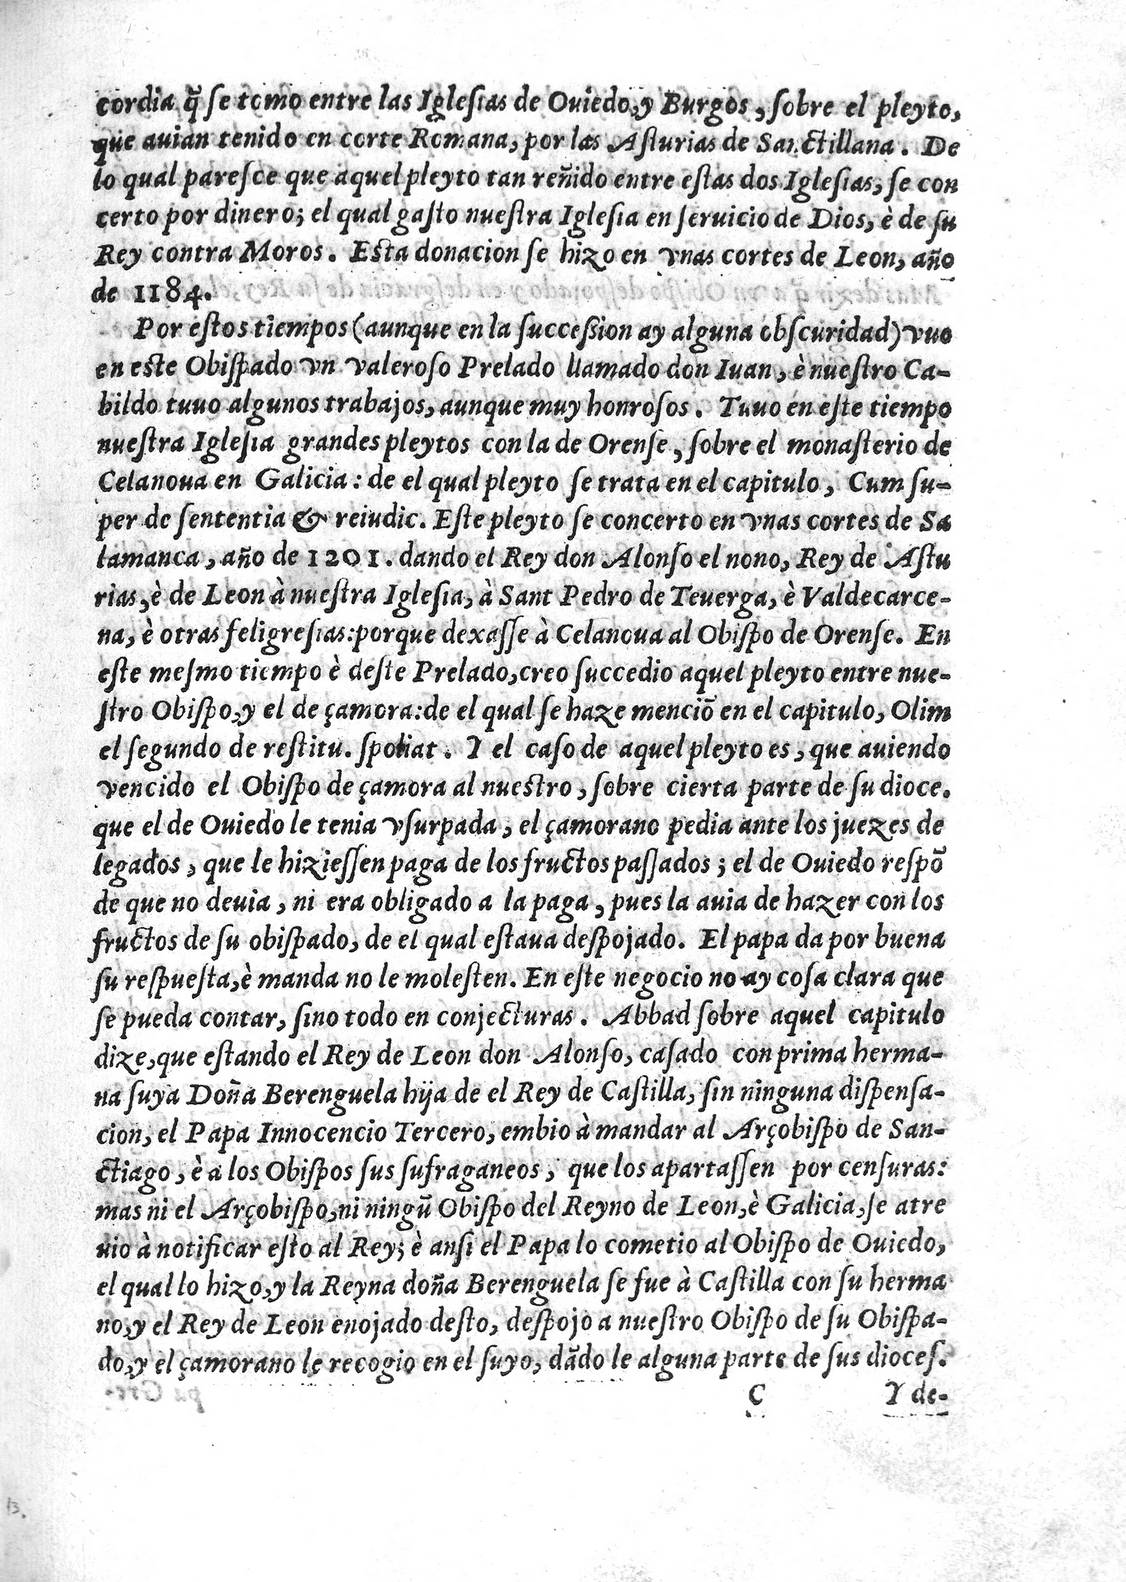 cordia q̃ ſe tomo entre las Igleſias de Ouiedo, y Burgos, ſobre el pleyto,
que auian tenido en corte Romana, por las Aſturias de Sanctillana. De
lo qual pareſce que aquel pleyto tan reñido entre eſtas dos Igleſias, ſe con
certo por dinero; el qual gaſto nueſtra Igleſia en ſeruicio de Dios, è de ſu
Rey contra Moros. Eſta donacion ſe hizo en vnas cortes de Leon, año
de 1184.
Por eſtos tiempos (aunque en la ſucceſsion ay alguna obſcuridad) vuo
en eſte Obiſpado vn valeroſo Prelado llamado don Iuan, è nueſtro Ca-
bildo tuuo algunos trabajos, aunque muy honroſos. Tuuo en eſte tiempo
nueſtra Igleſia grandes pleytos con la de Orenſe, ſobre el monaſterio de
Celanoua en Galicia: de el qual pleyto ſe trata en el capitulo, Cum ſu-
per de ſententia & reiudic. Eſte pleyto ſe concerto en vnas cortes de Sa
lamanca, año de 1201. dando el Rey don Alonſo el nono, Rey de Aſtu
rias, è de Leon à nueſtra Igleſia, à Sant Pedro de Teuerga, è Valdecarce-
na, è otras feligreſias: porque dexaſſe à Celanoua al Obiſpo de Orenſe. En
eſte meſmo tiempo è deſte Prelado, creo ſuccedio aquel pleyto entre nue-
ſtro Obiſpo, y el de çamora: de el qual ſe haze menciõ en el capitulo, Olim
el ſegundo de reſtitu. ſpoliat. Y el caſo de aquel pleyto es, que auiendo
vencido el Obiſpo de çamora al nueſtro, ſobre cierta parte de ſu dioce.
que el de Ouiedo le tenia vſurpada, el çamorano pedia ante los juezes de
legados, que le hizieſſen paga de los fructos paſſados; el de Ouiedo reſpõ
de que no deuia, ni era obligado a la paga, pues la auia de hazer con los
fructos de ſu obiſpado, de el qual eſtaua deſpojado. El papa da por buena
ſu reſpueſta, è manda no le moleſten. En eſte negocio no ay coſa clara que
ſe pueda contar, ſino todo en conjecturas. Abbad ſobre aquel capitulo
dize, que eſtando el Rey de Leon don Alonſo, caſado con prima herma-
na ſuya Doña Berenguela hija de el Rey de Caſtilla, ſin ninguna diſpenſa-
cion, el Papa Innocencio Tercero, embio à mandar al Arçobiſpo de San-
ctiago, è a los Obiſpos ſus ſufraganeos, que los apartaſſen por cenſuras:
mas ni el Arçobiſpo, ni ningũ Obiſpo del Reyno de Leon, è Galicia, ſe atre
uio à notificar eſto al Rey; è anſi el Papa lo cometio al Obiſpo de Ouiedo,
el qual lo hizo, y la Reyna doña Berenguela ſe fue à Caſtilla con ſu herma
no, y el Rey de Leon enojado deſto, deſpojo a nueſtro Obiſpo de ſu Obiſpa-
do, y el çamorano le recogio en el ſuyo, dãdo le alguna parte de ſus dioceſ.
C Y de-
13.